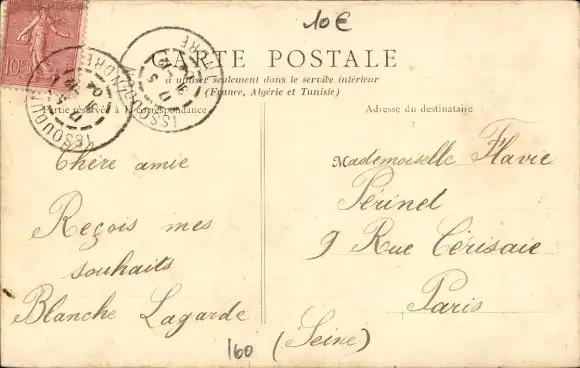 10€
CARTE POSTALE
à utiliser seulement dans le service intérieur
(France, Algérie et Tunisie)
Partie réservée à la correspondance
Adresse du destinataire
10c
ISSOUDUN
INDRE
ISSOUDUN
INDRE
Chère amie
Reçois mes
souhaits
Blanche Lagarde
Mademoiselle Flavie
Périnet
9 Rue Cérisaie
Paris
(Seine)
160